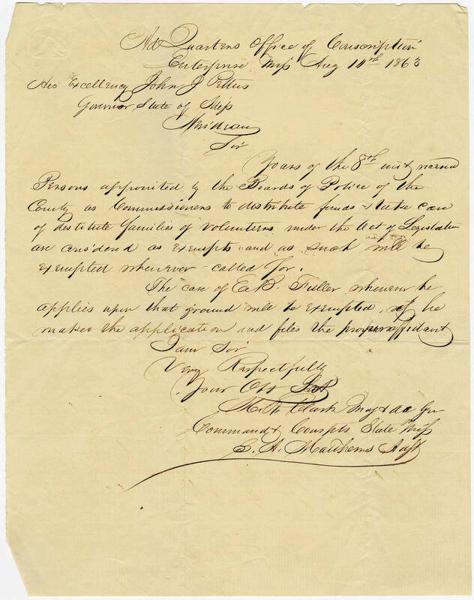 Hd Quarters Office of Conscription
Enterprise Miss Aug 10th 1863
His Excellency John J Pettus
Governor State of Miss
Meridian
Sir
Yours of the 8th inst received
Persons appointed by the Boards of Police of the
County as Commissioners to distribute funds & take care
of destitute families of Volunteers under the Act of Legislature
are considered as exempts and as such will be
exempted whenever called for.
The case of E B. Fuller whenever he
applies upon that ground will be exempted, if he
makes the application and files the proper affidavit
I am Sir
Very Respectfully
Your Obt Svt
Clark Maj & AA Gen
Command Conscpts State Miss
S. A. Matthews Adjt